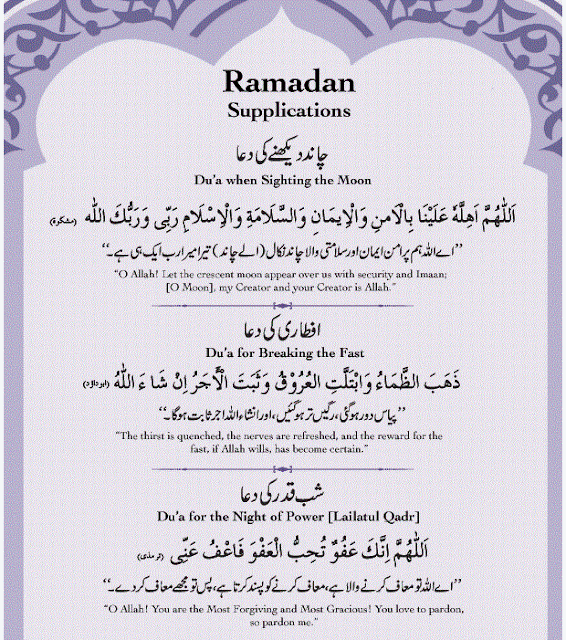 Ramadan
Supplications
چاند دیکھنے کی دعا
Du'a when Sighting the Moon
اَللّٰهُمَّ اَهِلَّهٗ عَلَيْنَا بِالْاَمنِ وَالْاِيمَانِ وَالسَّلَامَةِ وَالْاِسْلَامِ رَبِّى وَرَبُّكَ الله (مشکوۃ)
”اے اللہ ہم پر امن ایمان اور سلامتی والا چاند نکال (اے چاند) تیرا میرا رب ایک ہی ہے۔“
“O Allah! Let the crescent moon appear over us with security and Imaan;
[O Moon], my Creator and your Creator is Allah.”
افطاری کی دعا
Du'a for Breaking the Fast
ذَهَبَ الظَّمَاءُ وَابْتَلَّتِ العُرُوْقُ وَثَبَتَ الْاَجَرُ اِنْ شَاءَ اللهُ (ابوداؤد)
”پیاس دور ہوگئی، رگیں تر ہوگئیں، اور انشاء اللہ اجر ثابت ہوگا۔“
“The thirst is quenched, the nerves are refreshed, and the reward for the
fast, if Allah wills, has become certain.”
شب قدر کی دعا
Du'a for the Night of Power [Lailatul Qadr]
اَللّٰهُمَّ اِنَّكَ عَفُوٌ تُحِبُّ الْعَفْوَ فَاعْفُ عَنِّى (ترمذی)
”اے اللہ تو معاف کرنے والا ہے، معاف کرنے کو پسند کرتا ہے، پس تو مجھے معاف کر دے۔“
“O Allah! You are the Most Forgiving and Most Gracious! You love to pardon,
so pardon me.”